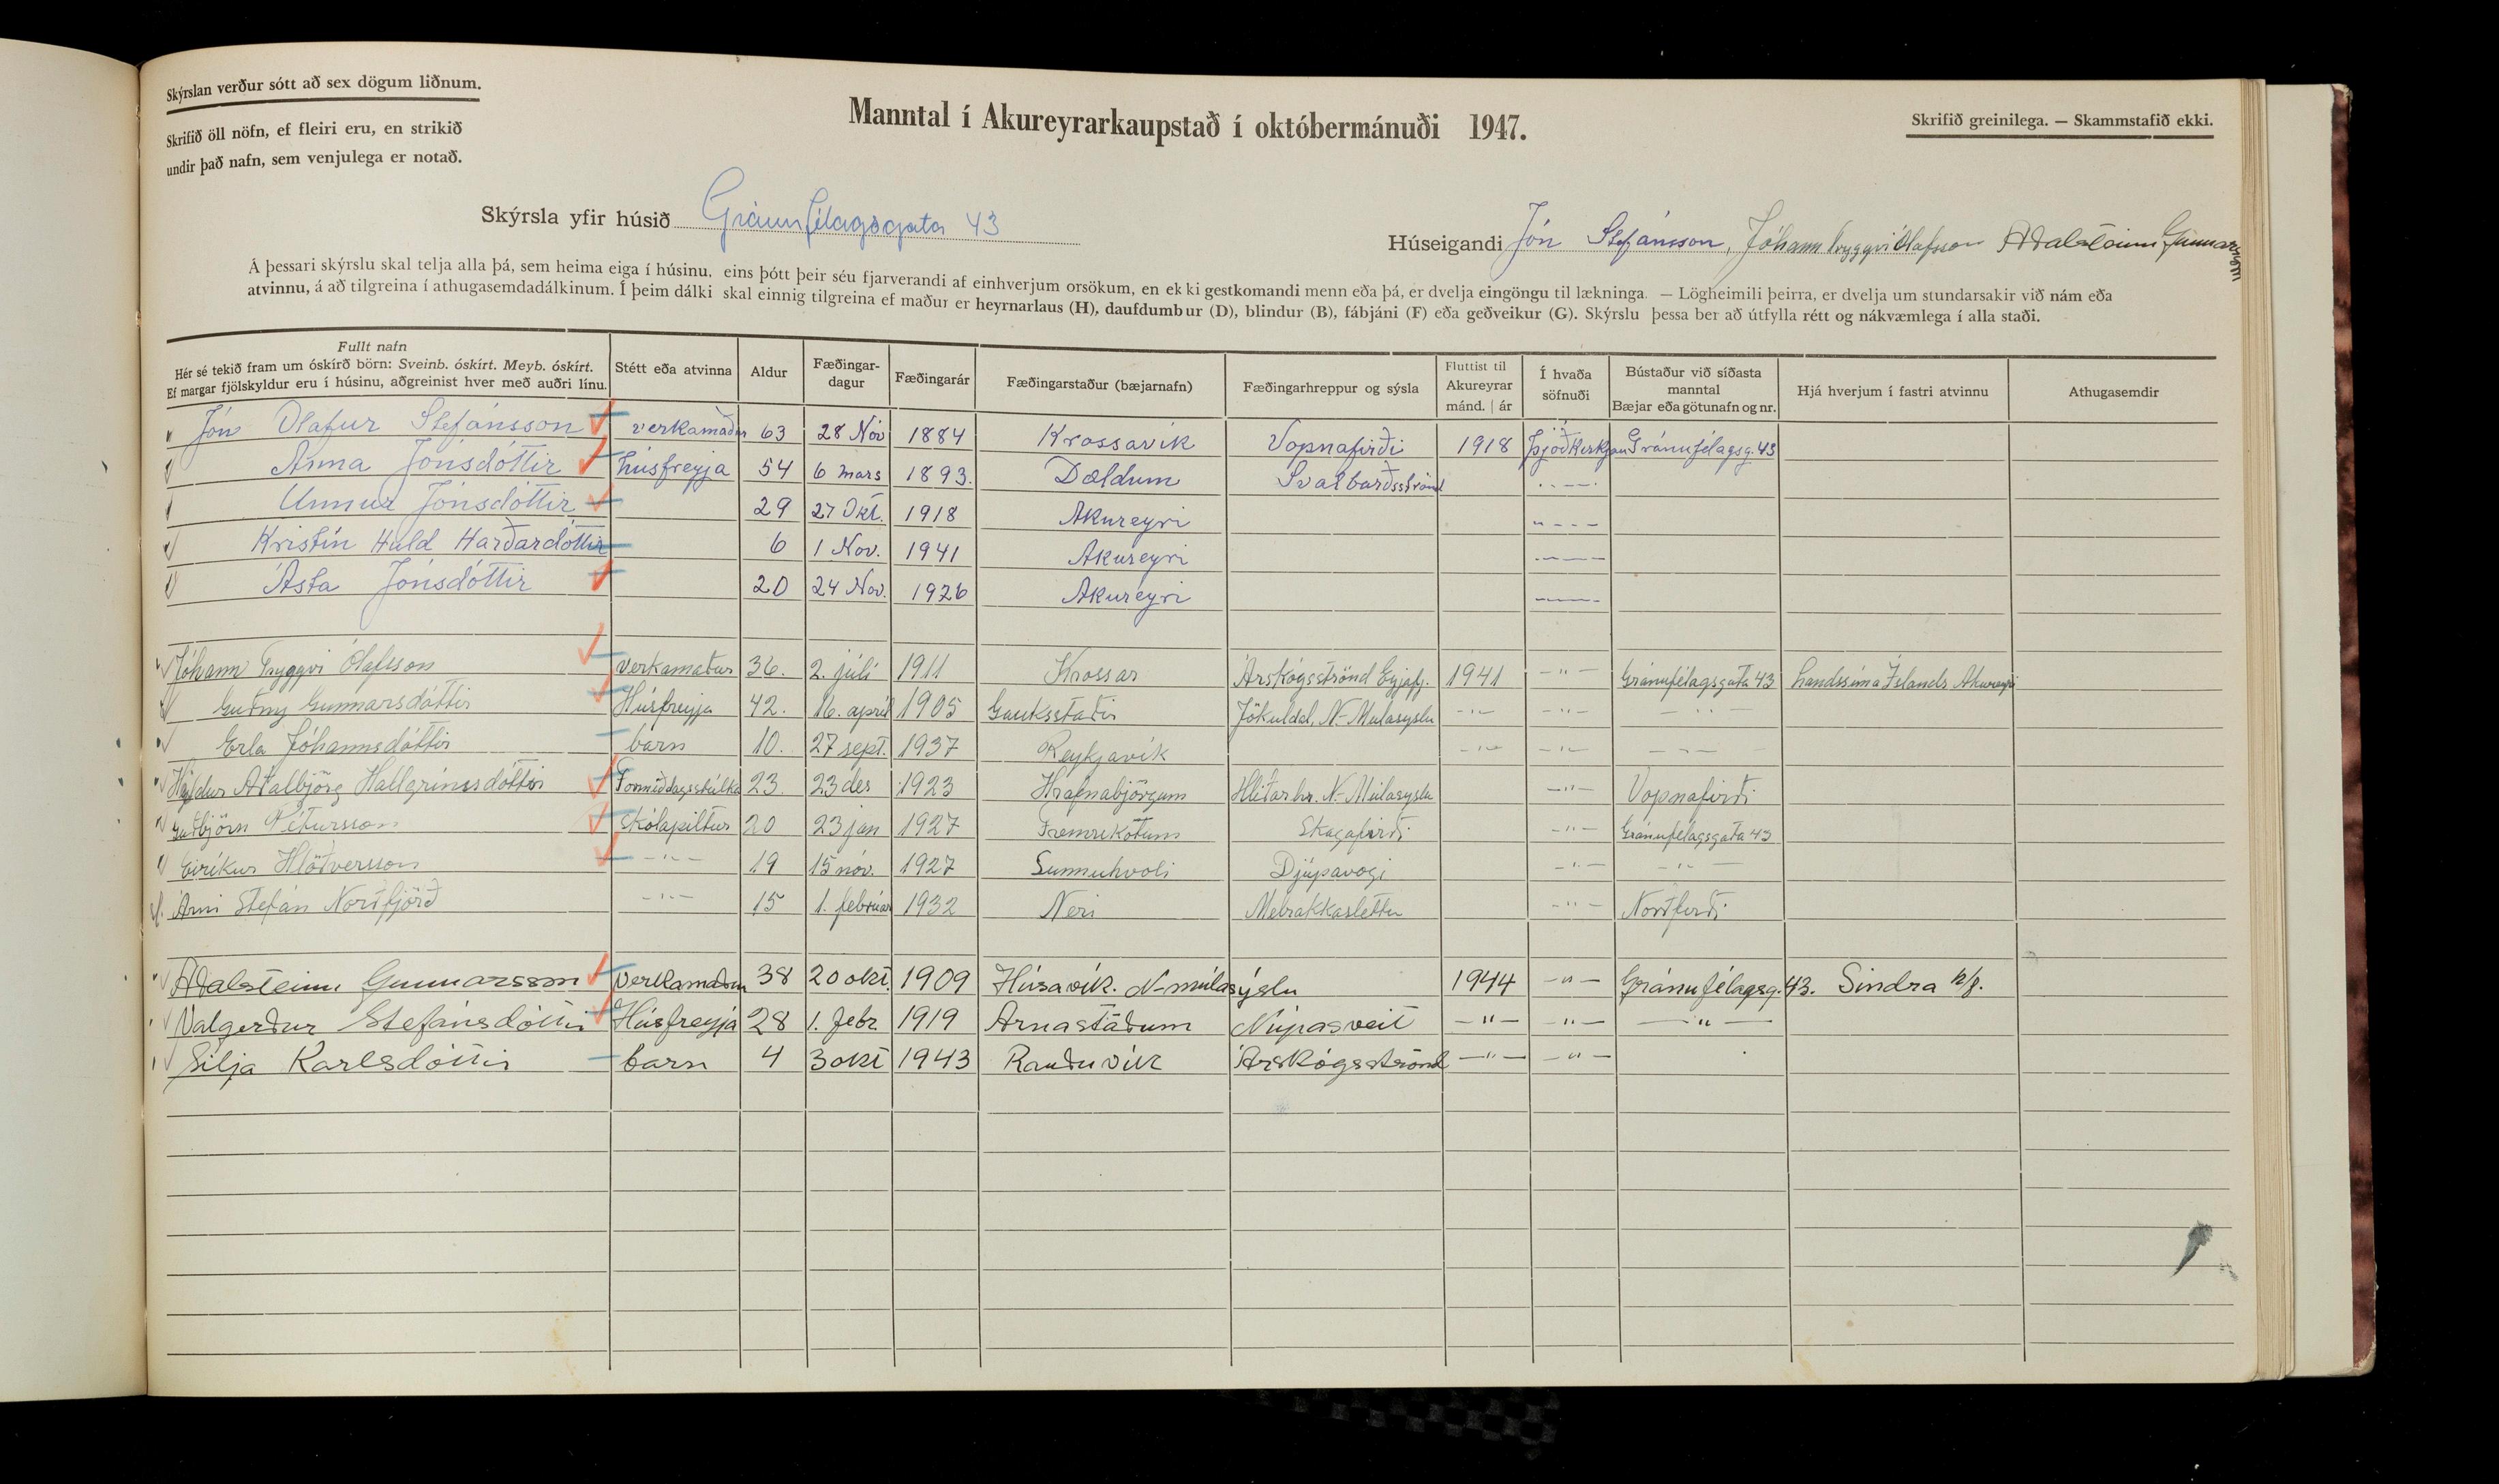 Skýrslan verður sótt að sex dögum liðnum.
Skrifið öll nöfn, ef fleiri eru, en strikið
undir það nafn, sem venjulega er notað.
Manntal í Akureyrarkaupstað í októbermánuði 1947.
Skrifið greinilega. — Skammstafið ekki.
Skýrsla yfir húsið Gránufélagsgata 43
Húseigandi Jón Stefánsson, Jóhann Tryggvi Ólafsson Aðalsteinn Gunnarsson
Á þessari skýrslu skal telja alla þá, sem heima eiga í húsinu, eins þótt þeir séu fjarverandi af einhverjum orsökum, en ekki gestkomandi menn eða þá, er dvelja eingöngu til lækninga. — Lögheimili þeirra, er dvelja um stundarsakir við nám eða
atvinnu, á að tilgreina í athugasemdadálkinum. Í þeim dálki skal einnig tilgreina ef maður er heyrnarlaus (H), daufdumbur (D), blindur (B), fábjáni (F) eða geðveikur (G). Skýrslu þessa ber að útfylla rétt og nákvæmlega í alla staði.
Fullt nafn
Hér sé tekið fram um óskírð börn: Sveinb. óskírt. Meyb. óskírt.
Ef margar fjölskyldur eru í húsinu, aðgreinist hver með auðri línu.
Stétt eða atvinna
Aldur
Fæðingar-
dagur
Fæðingarár
Fæðingarstaður (bæjarnafn)
Fæðingarhreppur og sýsla
Fluttist til
Akureyrar
mánd. | ár
Í hvaða
söfnuði
Bústaður við síðasta
manntal
Bæjar eða götunafn og nr.
Hjá hverjum í fastri atvinnu
Athugasemdir
Jón Ólafur Stefánsson verkamaður 63 28 Nóv 1884 Krossavík Vopnafirði 1918 Þjóðkirkjan Gránufélagsg. 43
Anna Jónsdóttir húsfreyja 54 6 mars 1893. Dældum Svalbarðsströnd
Unnur Jónsdóttir 29 27 Okt. 1918 Akureyri
Kristín Huld Harðardóttir 6 1 Nov. 1941 Akureyri
Ásta Jónsdóttir 20 24 Nov. 1926 Akureyri
Jóhann Tryggvi Ólafsson verkamaður 36. 2. júlí 1911 Krossar Árskógsströnd Eyjafj. 1941 —"— Gránufélagsgata 43 Landssíma Íslands Akureyri
Guðný Gunnarsdóttir Húsfreyja 42. 16. apríl 1905 Gauksstaðir Jökuldal, N.-Múlasýslu —"— —"— —"—
Erla Jóhannsdóttir barn 10. 27 sept. 1937 Reykjavík —"— —"— —"—
Aðalbjörg Hallgrímsdóttir Formiðdagsstúlka 23 23 des 1923 Hrafnabjörgum Hlíðarhr. N.-Múlasýslu —"— Vopnafirði
Guðbjörn Pétursson Skólapiltur 20 23 jan 1927 Fremrikotum Skagafirði —"— Gránufélagsgata 43
Eiríkur Hlöðversson —"— 19 15 nóv. 1927 Sunnuhvoli Djúpavogi —"— —"—
Árni Stefán Norðfjörð —"— 15 1. febrúar 1932 Neri Melrakkasléttu —"— Norðfirði
Aðalsteinn Gunnarsson verkamaður 38 20 okt. 1909 Húsavík. N-múlasýslu 1944 —"— Gránufélagsg. 43. Sindra h/f.
Valgerður Stefánsdóttir Húsfreyja 28 1. febr 1919 Arnastöðum Núpasveit —"— —"— —"—
Silja Karlsdóttir barn 4 3 okt 1943 Rauðuvík Árskógsströnd —"— —"—